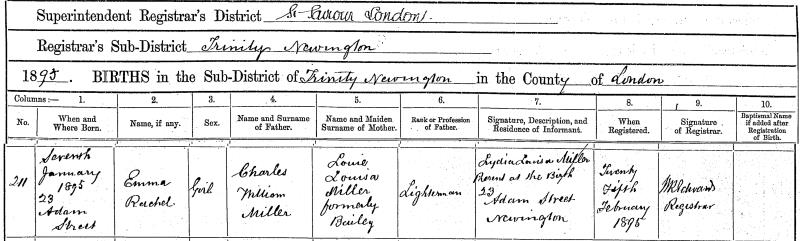 Superintendent Registrar's District St Saviour London.
Registrar's Sub-District Trinity Newington
1895. BIRTHS in the Sub-District of Trinity Newington in the County of London
Columns:— 1. 2. 3. 4. 5. 6. 7. 8. 9. 10.
No. When and Where Born. Name, if any. Sex. Name and Surname of Father. Name and Maiden Surname of Mother. Rank or Profession of Father. Signature, Description, and Residence of Informant. When Registered. Signature of Registrar. Baptismal Name if added after Registration of Birth.
211
Seventh
January
1895
23
Adam
Street
Emma
Rachel
Girl
Charles
William
Miller
Louie
Louisa
Miller
formerly
Bailey
Lighterman
Lydia Louisa Miller
Present at the Birth
23
Adam Street
Newington
Twenty
Fifth
February
1895
Edwards
Registrar